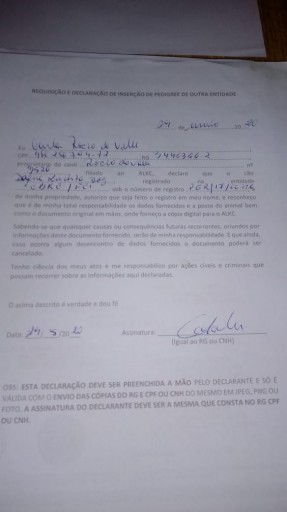 REQUISIÇÃO E DECLARAÇÃO DE INSERÇÃO DE PEDIGREE DE OUTRA ENTIDADE
24 de de 20
Eu Rocio do Valle
CPF: RG
proprietário do canil Rocio do Valle nº
filiado ao ALKC, declaro que o cão
registrado na entidade
CBKC/FCI , sob o número de registro
de minha propriedade, autorizo que seja feito o registro em meu nome, e reconheço
que é de minha total responsabilidade os dados fornecidos e a posse do animal bem
como o documento original em mãos, onde forneço a cópia digital para o ALKC.
Sabendo se que quaisquer causas ou consequências futuras recorrentes, oriundos por
informações desse documento fornecido, serão de minha responsabilidade. E que ainda,
caso ocorra algum desencontro de dados fornecidos o documento poderá ser
cancelado.
Tenho ciência dos meus atos e me responsabilizo por ações civeis e criminais que
possam recorrer sobre as informações aqui declaradas.
O acima descrito é verdade e dou fé
Data: 24/5/2020 Assinatura:
(Igual ao RG ou CNH)
OBS: ESTA DECLARAÇÃO DEVE SER PREENCHIDA A MÃO PELO DECLARANTE E SÓ É
VÁLIDA COM O ENVIO DAS CÓPIAS DO RG E CPF OU CNH DO MESMO EM JPEG, PNG OU
FOTO. A ASSINATURA DO DECLARANTE DEVE SER A MESMA QUE CONSTA NO RG CPF
OU CNH.